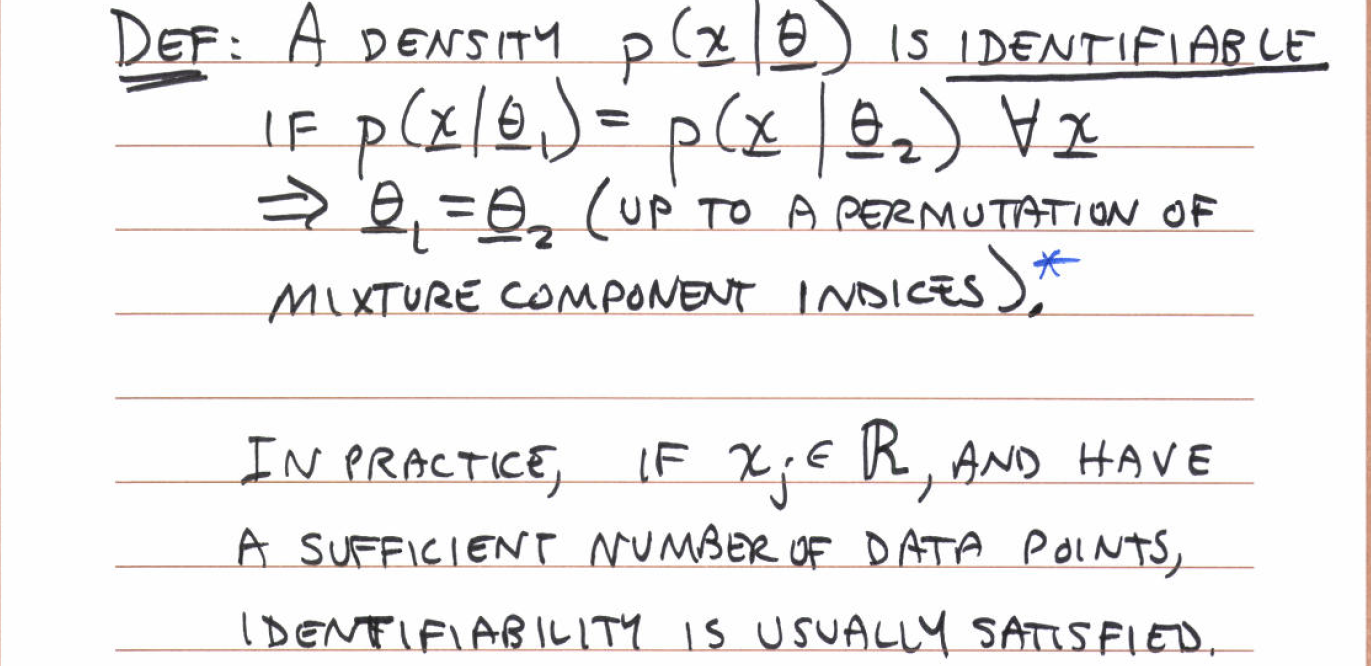 DEF: A DENSITY p(x|θ) IS IDENTIFIABLE
IF p(x|θ₁) = p(x|θ₂) ∀ x
⇒ θ₁ = θ₂ (UP TO A PERMUTATION OF
MIXTURE COMPONENT INDICES).*
IN PRACTICE, IF xⱼ ∈ ℝ, AND HAVE
A SUFFICIENT NUMBER OF DATA POINTS,
IDENTIFIABILITY IS USUALLY SATISFIED.